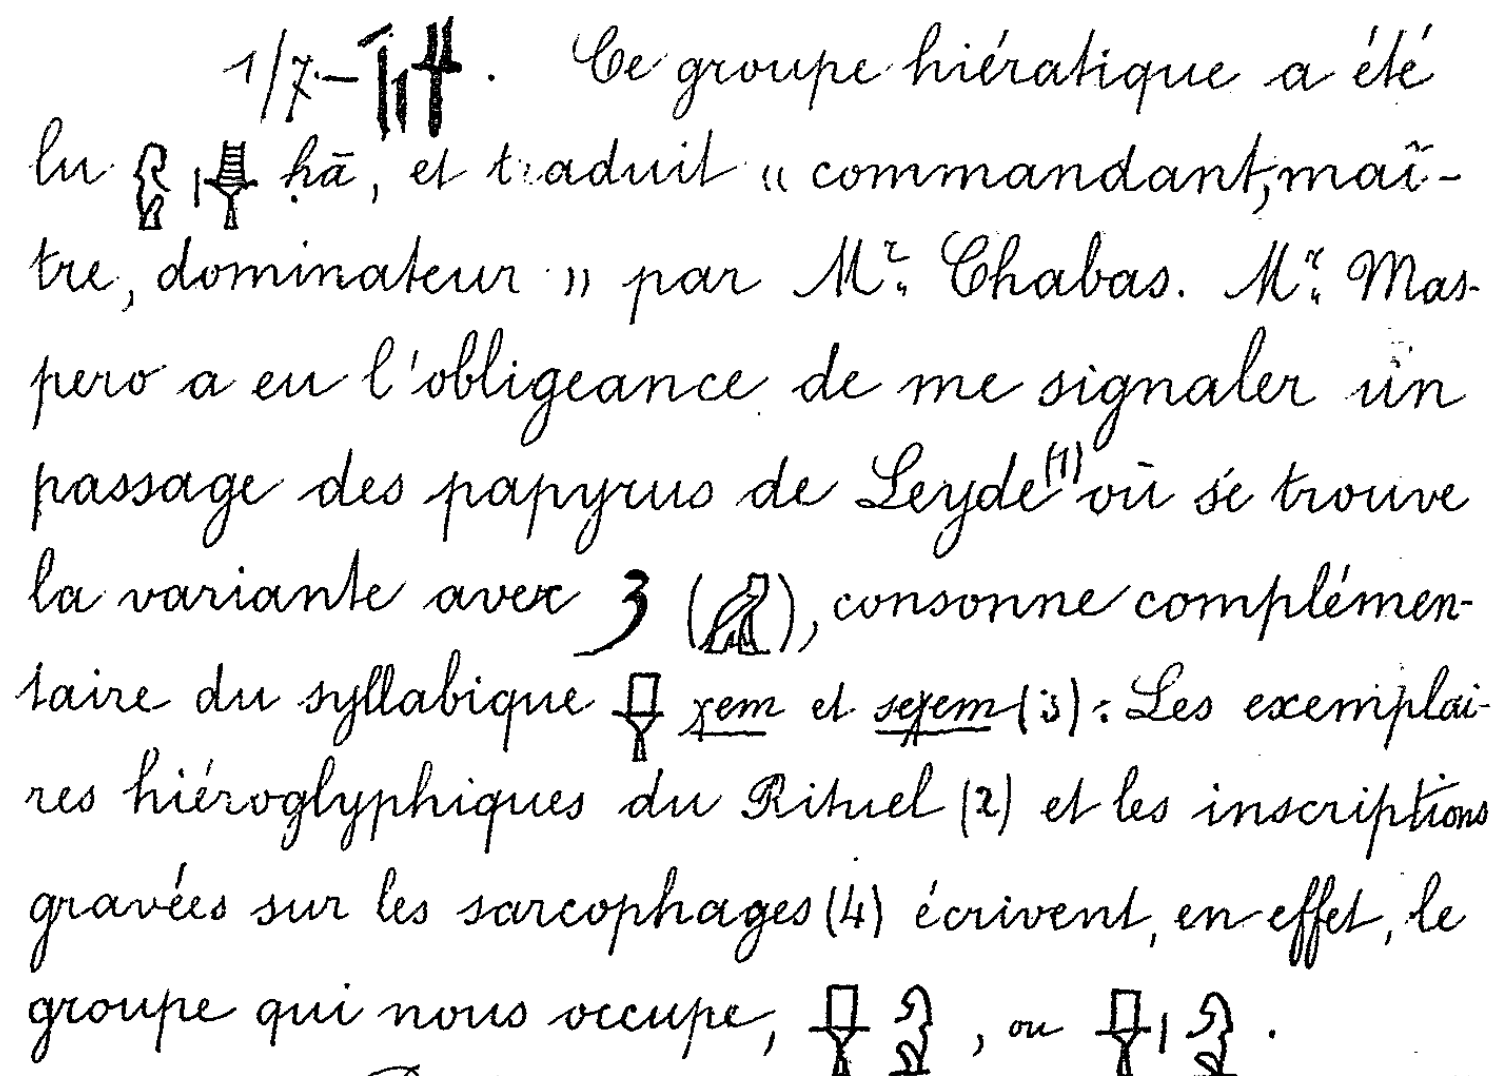 1/7.— . Ce groupe hiératique a été
lu ḥā, et traduit « commandant, maî-
tre, dominateur » par Mr. Chabas. Mr. Mas-
pero a eu l'obligeance de me signaler un
passage des papyrus de Leyde (1) où se trouve
la variante avec 𓅓 (𓅓), consonne complémen-
taire du syllabique 𓌂 χem et seχem (3). Les exemplai-
res hiéroglyphiques du Rituel (2) et les inscriptions
gravées sur les sarcophages (4) écrivent, en effet, le
groupe qui nous occupe, , ou .